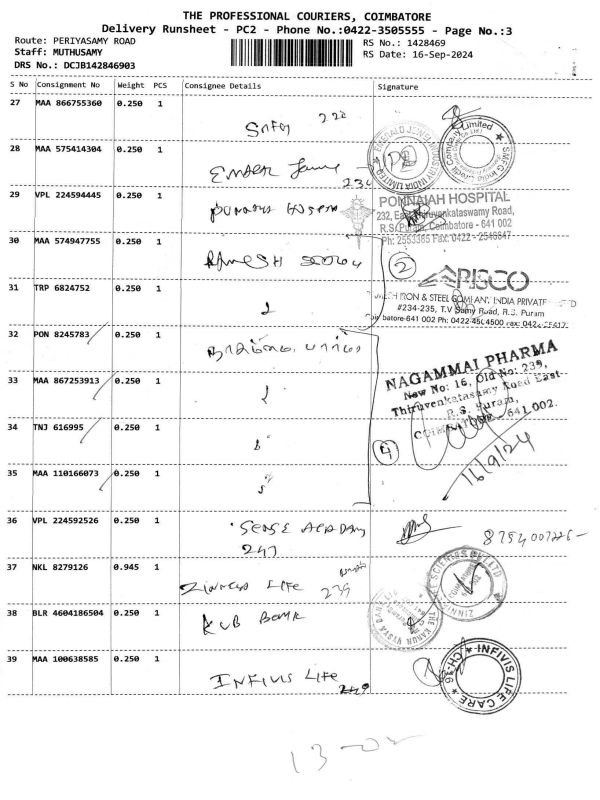 THE PROFESSIONAL COURIERS, COIMBATORE
Delivery Runsheet - PC2 - Phone No.:0422-3505555 - Page No.:3
Route: PERIYASAMY ROAD
RS No.: 1428469
Staff: MUTHUSAMY
RS Date: 16-Sep-2024
DRS No.: DCJB142846903
S No Consignment No Weight PCS Consignee Details Signature
27 MAA 866755360 0.250 1
222
28 MAA 575414304 0.250 1
234
29 VPL 224594445 0.250 1
PONNAIAH HOSPITAL
232, Thiruvenkataswamy Road,
R.S. Puram, Coimbatore - 641 002
Ph: 2553385 Fax: 0422 - 2546847
30 MAA 574947755 0.250 1 RAMESH
2
31 TRP 6824752 0.250 1
IRON & STEEL COMPANY INDIA PRIVATE
#234-235, T.V Samy Road, R.S. Puram
batore-641 002 Ph: 0422-4504500
32 PON 8245783 0.250 1
NAGAMMAI PHARMA
New No: 16, Old No: 239,
Thiruvenkatasamy Road East
R.S. Puram,
COIMBATORE - 641 002.
33 MAA 867253913 0.250 1
34 TNJ 616995 0.250 1
4
16/9/24
35 MAA 110166073 0.250 1
36 VPL 224592526 0.250 1 SENSE ACADAMY
247
37 NKL 8279126 0.945 1
LIFE 239
38 BLR 4604186504 0.250 1 KVB BANK
THE KARUR VYSYA BANK LTD
39 MAA 100638585 0.250 1 INFIVIS LIFE
INFIVIS LIFE CARE
13-02